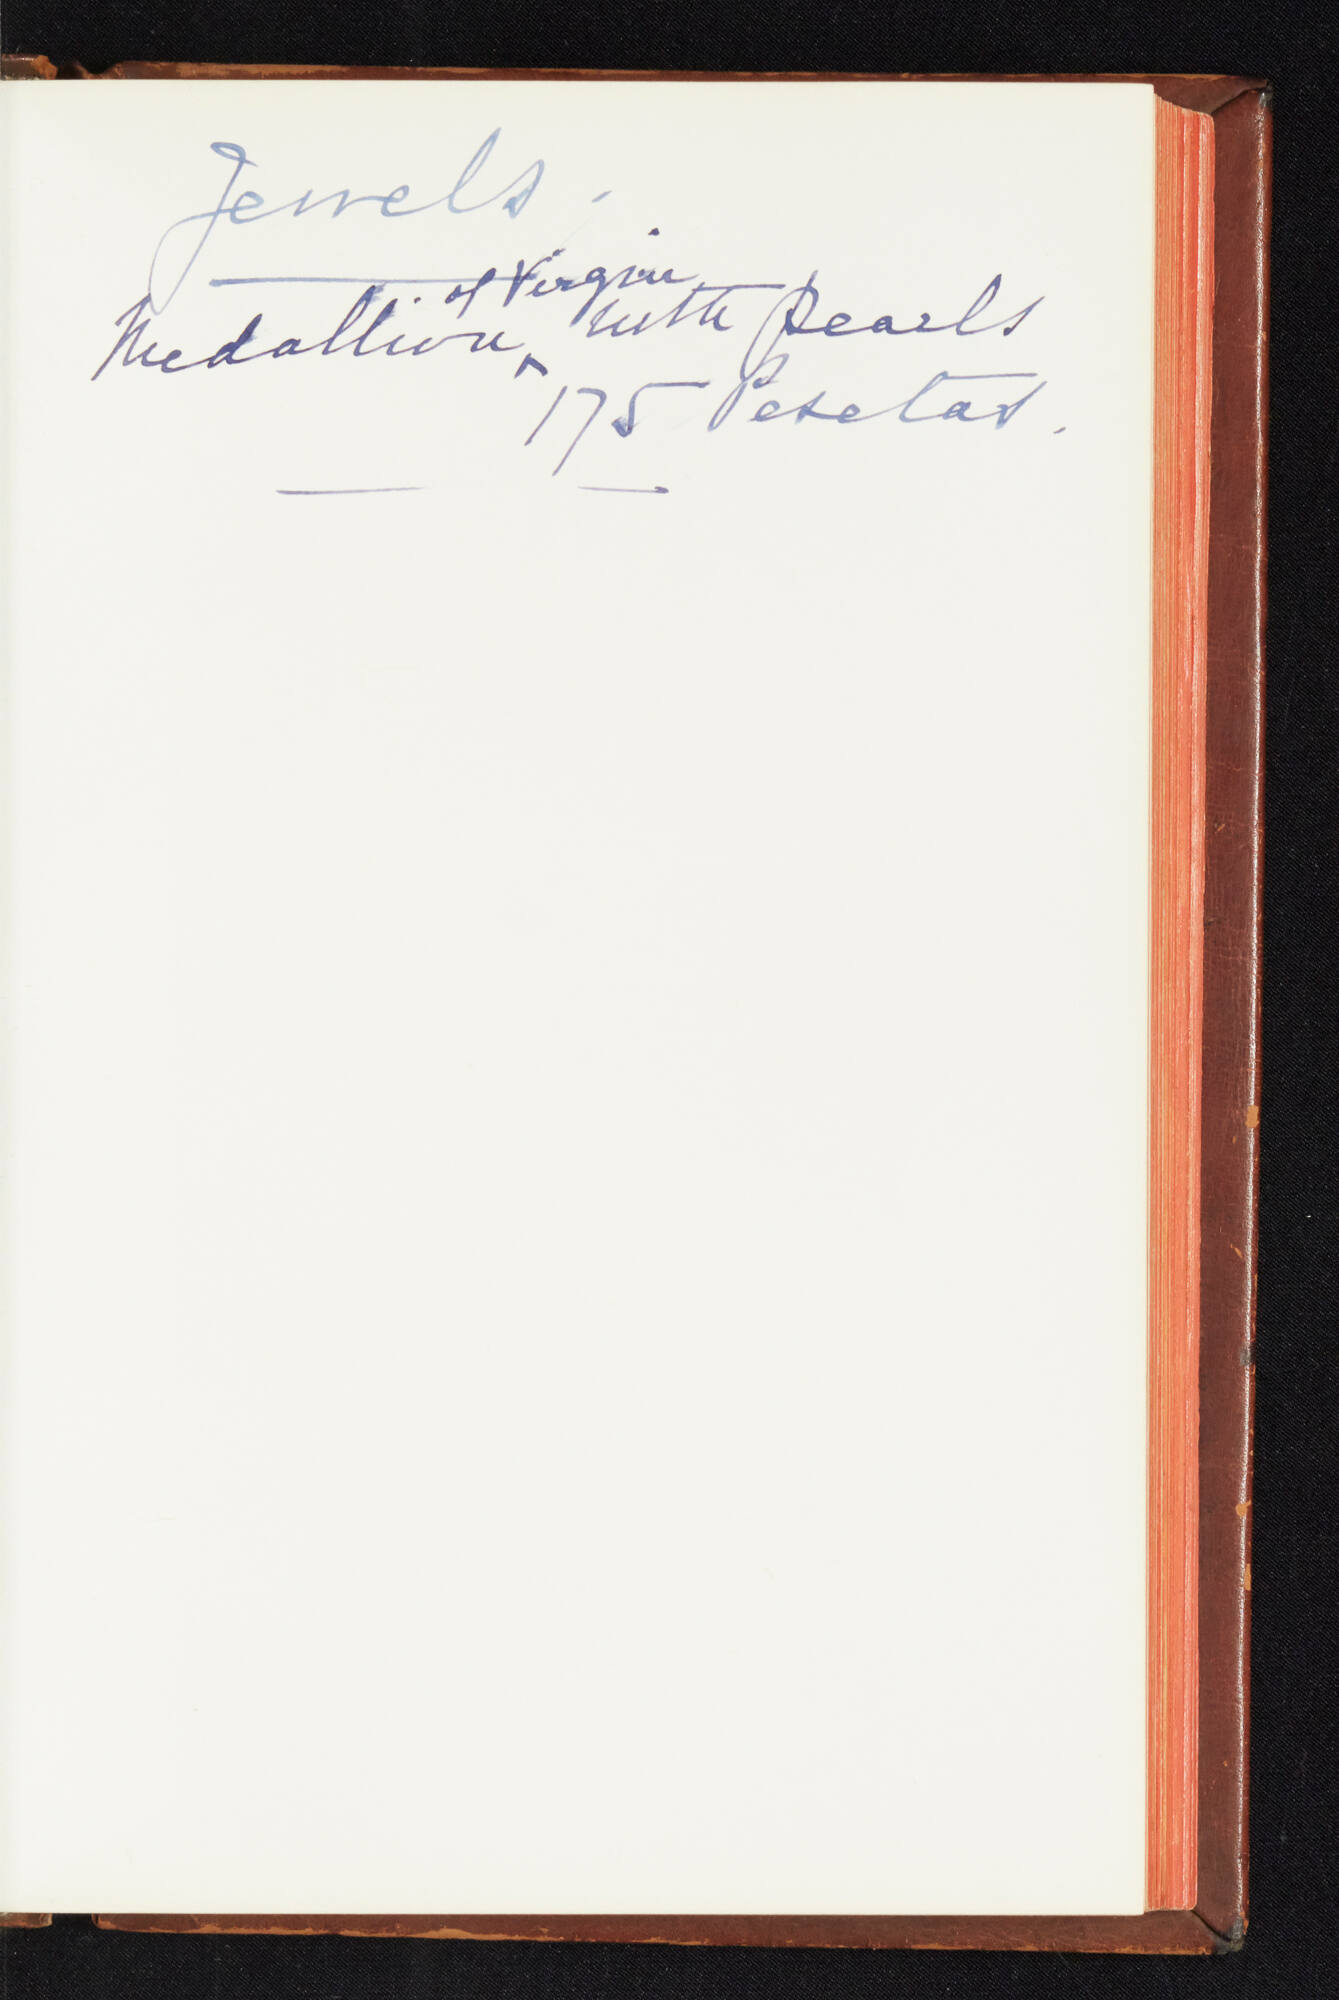 Jewels.
Medallion of Virgin with pearls
175 Pesetas.